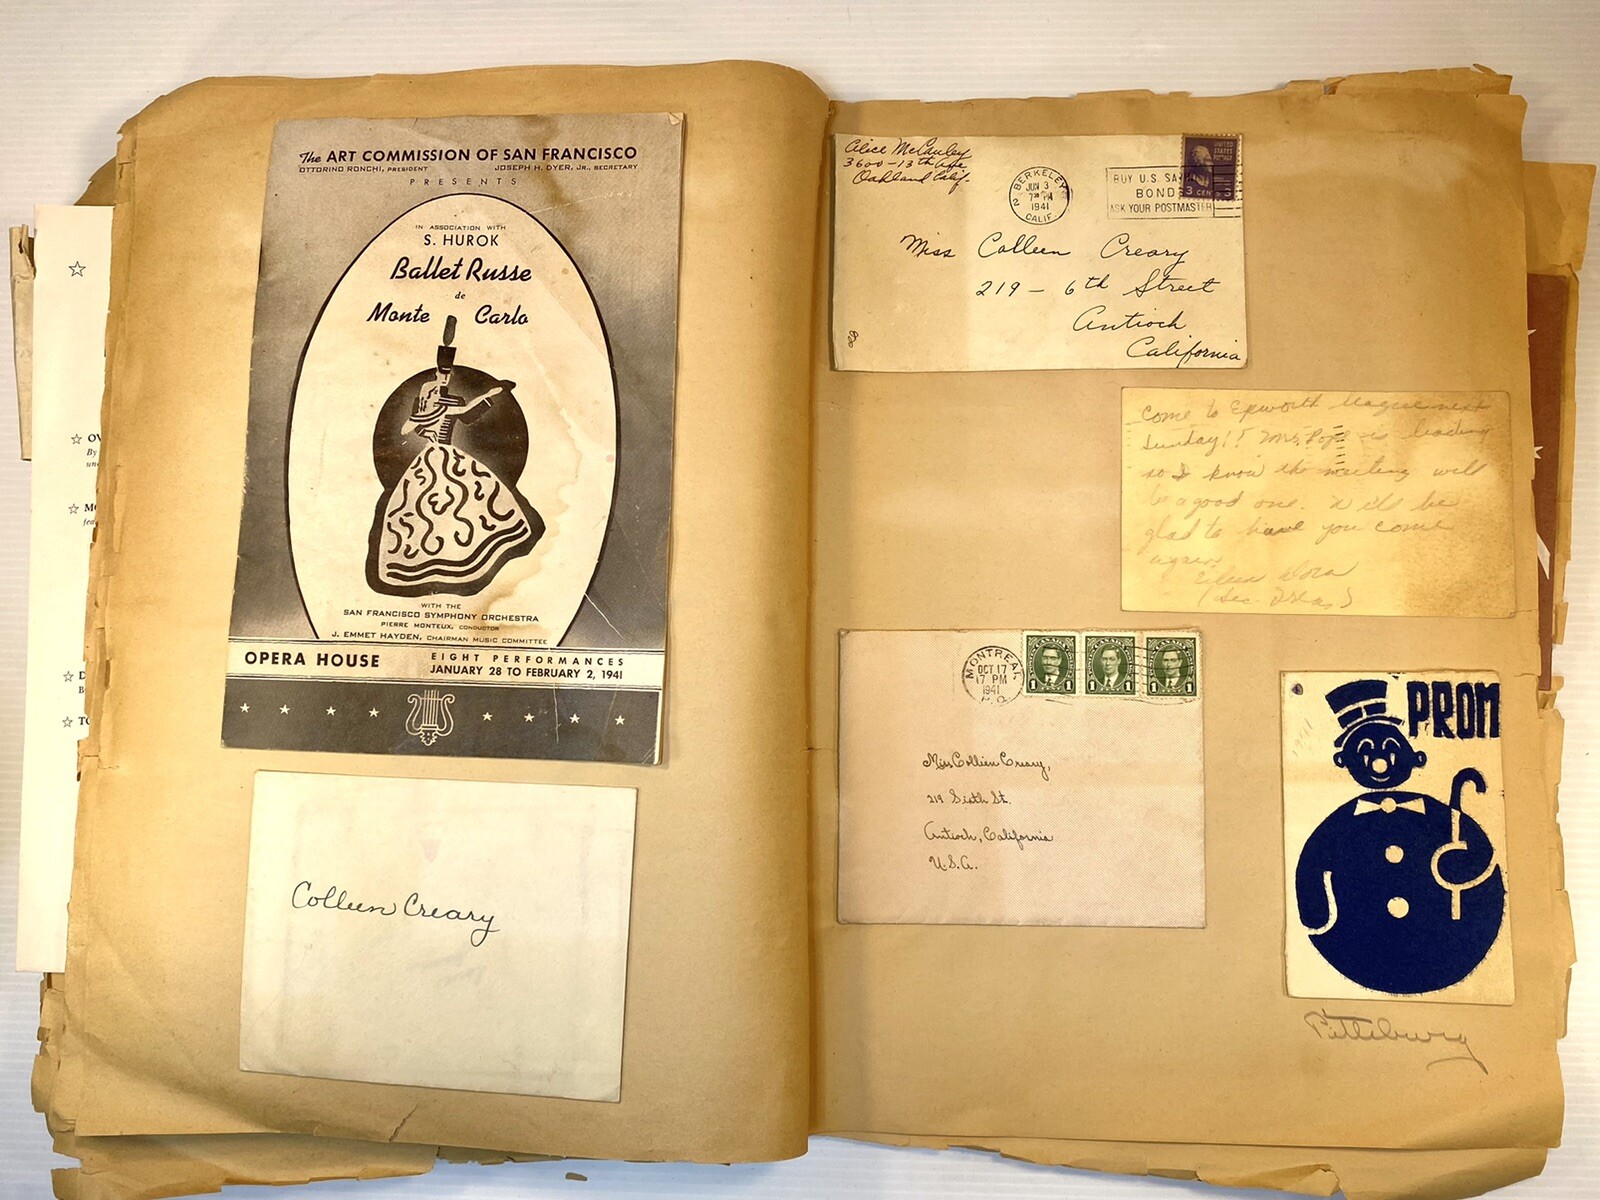 ☆
☆ OV
By
und
☆ MO
fea
☆ D
B
☆ TO
The ART COMMISSION OF SAN FRANCISCO
OTTORINO RONCHI, PRESIDENT JOSEPH H. DYER, JR., SECRETARY
PRESENTS
IN ASSOCIATION WITH
S. HUROK
Ballet Russe
de
Monte Carlo
WITH THE
SAN FRANCISCO SYMPHONY ORCHESTRA
PIERRE MONTEUX, CONDUCTOR
J. EMMET HAYDEN, CHAIRMAN MUSIC COMMITTEE
OPERA HOUSE
EIGHT PERFORMANCES
JANUARY 28 TO FEBRUARY 2, 1941
Colleen Creary
Alice McCauley
3600-13th Ave
Oakland Calif.
BERKELEY
JUN 3
7 PM
1941
CALIF.
2
BUY U.S. SAVINGS
BONDS
ASK YOUR POSTMASTER
UNITED
STATES
POSTAGE
3 CENTS 3
Miss Colleen Creary
219 - 6th Street
Antioch
California
Come to Epworth League next
Sunday!! Mrs. is leading
so I know the meeting will
be a good one. We'll be
glad to have you come
again.
Eileen
MONTREAL
OCT 17
17 PM
1941
P.Q.
CANADA CANADA CANADA
1 1 1 1 1 1
Miss Colleen Creary,
219 Sixth St.
Antioch, California
U.S.A.
PROM
1941
Pittsburg